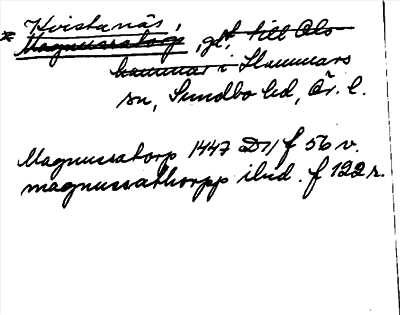 * Kvistanäs,
Magnussatorp, gl! till Als-
hammar i Hammars
sn, Sundbo hd, Ör. l.
Magnussatorp 1447 D11 f 56 v.
magnussathorpp ibid. f 122 r.